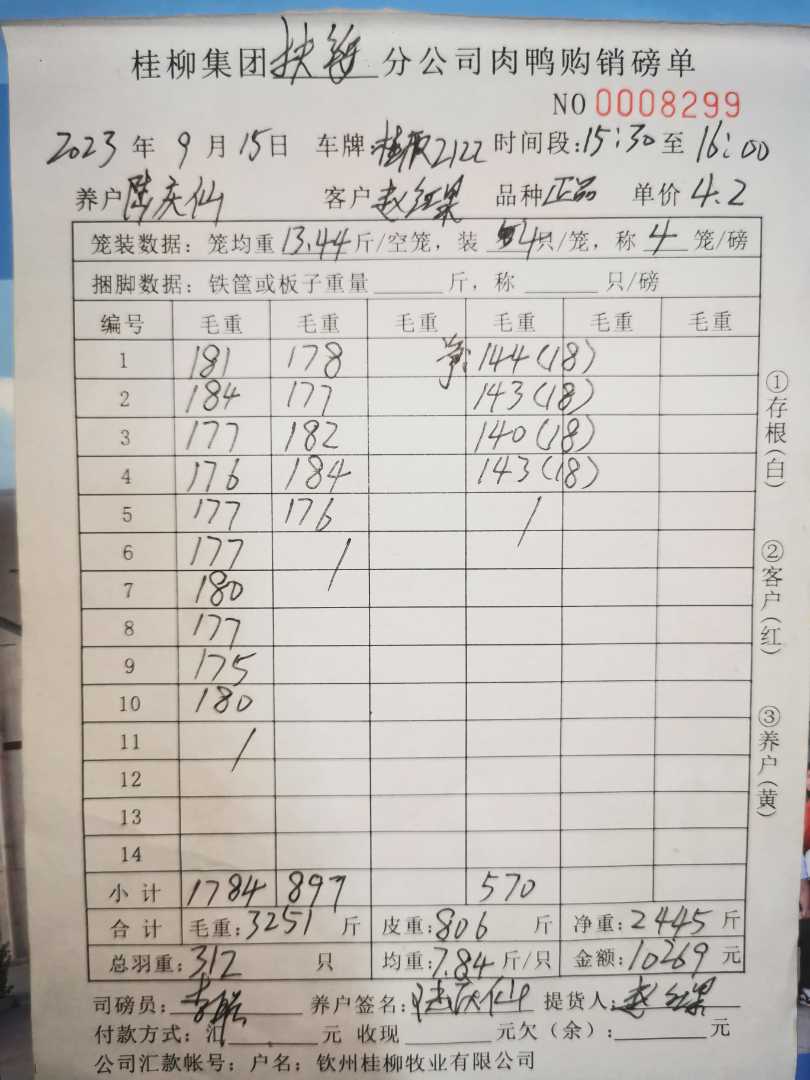 桂柳集团扶绥分公司肉鸭购销磅单
NO 0008299
2023年9月15日 车牌:桂 2122 时间段:15:30至16:00
养户陆庆仙 客户赵红果 品种正品 单价4.2
笼装数据:笼均重13.44斤/空笼,装4只/笼,称4笼/磅
捆脚数据:铁筐或板子重量______斤,称______只/磅
编号 毛重 毛重 毛重 毛重 毛重 毛重
1 181 178 144(18)
2 184 177 143(18)
3 177 182 140(18)
4 176 184 143(18)
5 177 176 /
6 177 /
7 180
8 177
9 175
10 180
11 /
12
13
14
小计 1784 897 570
合计 毛重:3251斤 皮重:806斤 净重:2445斤
总羽重:312只 均重:7.84斤/只 金额:10269元
司磅员: 养户签名:陆庆仙 提货人:赵红果
付款方式:汇______元 收现______元欠(余):______元
公司汇款帐号:户名:钦州桂柳牧业有限公司
①存根(白)
②客户(红)
③养户(黄)